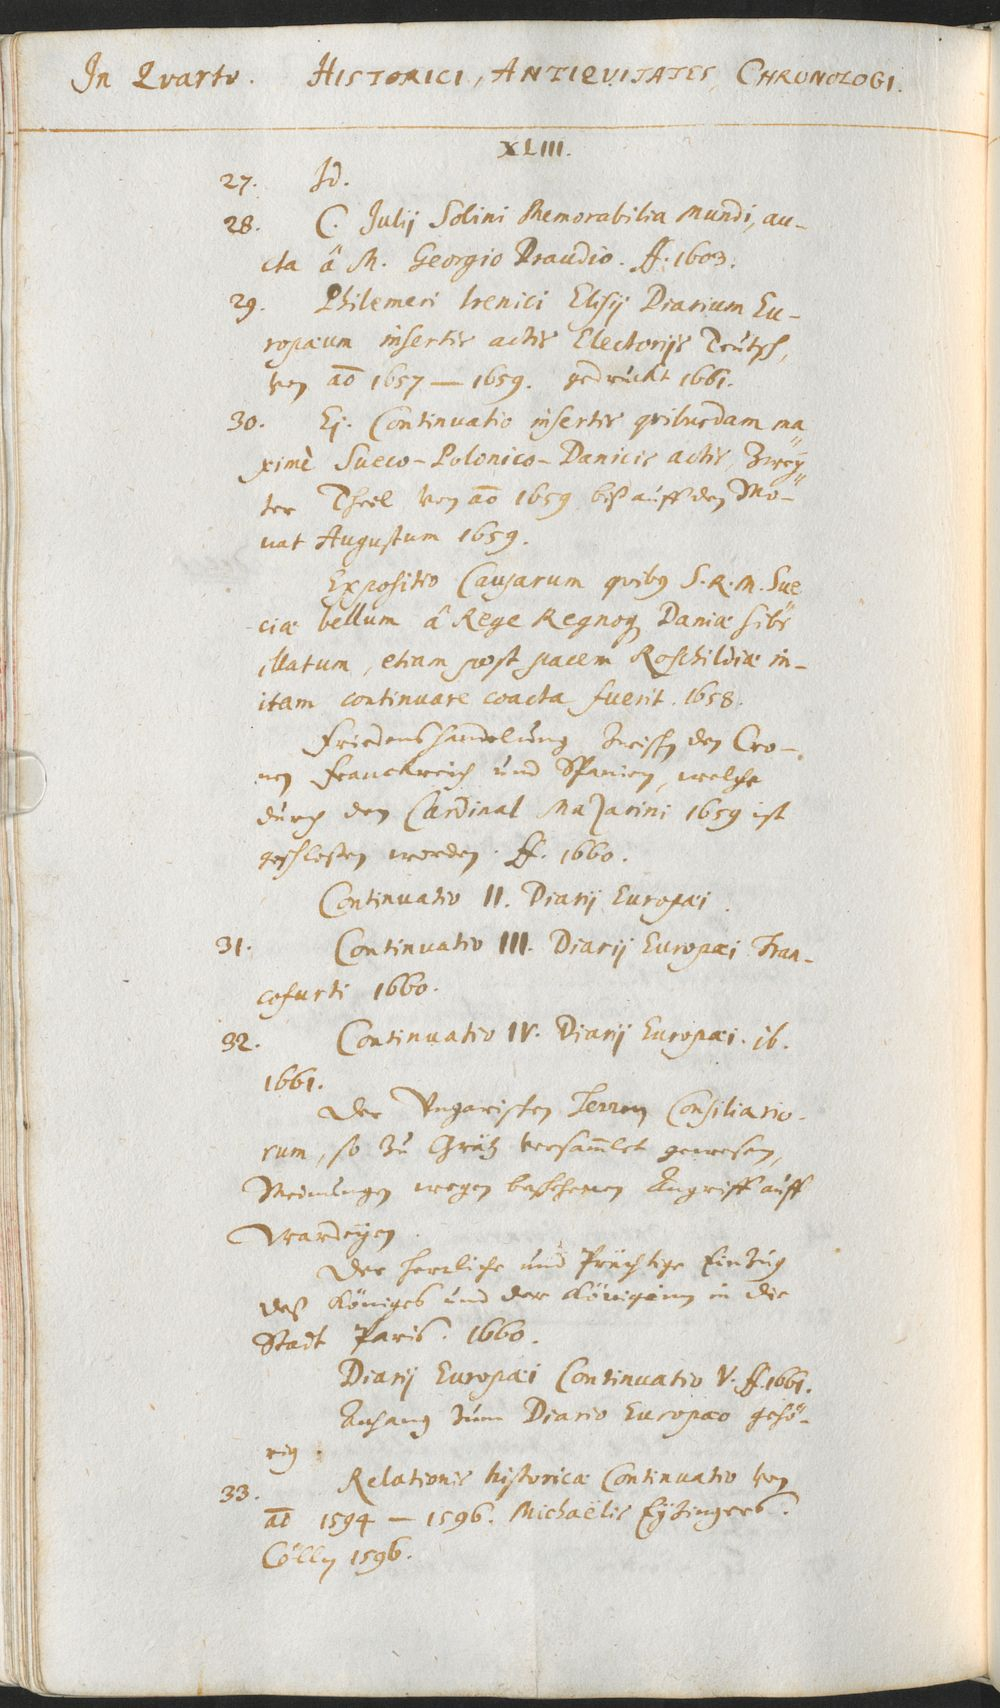 In Qvarto. HISTORICI, ANTIQVITATES, CHRONOLOGI.
XLIII.
27. Id.
28. C. Julij Solini Memorabilia Mundi, au-
cta â M. Georgio Draudio. ff. 1603.
29. Philemeri Irenici Elisij Diarium Eu-
ropæum insertis actis Electorijs Teutsch,
von aō 1657 — 1659. gedruckt 1661.
30. Ej. Continuatio insertis qvibusdam ma
ximè Sueco-Polonico-Danicis actis, Zwey
ter Theil von aō 1659 biß auff den Mo-
nat Augustum 1659.
Expositio Causarum qvibq S.R.M. Sue
ciæ bellum â Rege Regnoq Daniæ sibi
illatum, etiam post pacem Roschildiæ in-
itam continuare coacta fuerit. 1658.
Friedenshandelung zwischen den Cro-
nen Franckreich und Spanien, welche
durch den Cardinal Mazarini 1659 ist
geschloßen worden. ff. 1660.
Continuatio II. Diarij Europæi.
31. Continuatio III. Diarij Europæi Fran-
cofurti 1660.
32. Continuatio IV. Diarij Europæi. ib.
1661.
Der Ungarischen Herren Consiliario-
rum, so zu Grätz versam̄let gewesen,
Meinungen wegen beschehenen Angriff auff
Wardeyen.
Der herrliche und Prächtige Einzug
deß Königes und der Königinn in die
Stadt Paris. 1660.
Diarij Europæi Continuatio V. ff. 1661.
Anhang zum Diario Europæo gehö-
rig.
33. Relationis historicæ Continuatio von
aō 1594 — 1596. Michaëlis Eyzingers.
Cölln 1596.